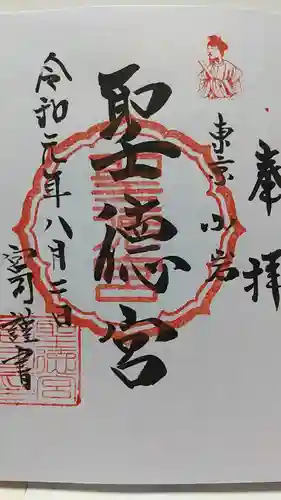 奉拝
東京小岩
聖徳宮
令和元年八月二日
宮司謹書